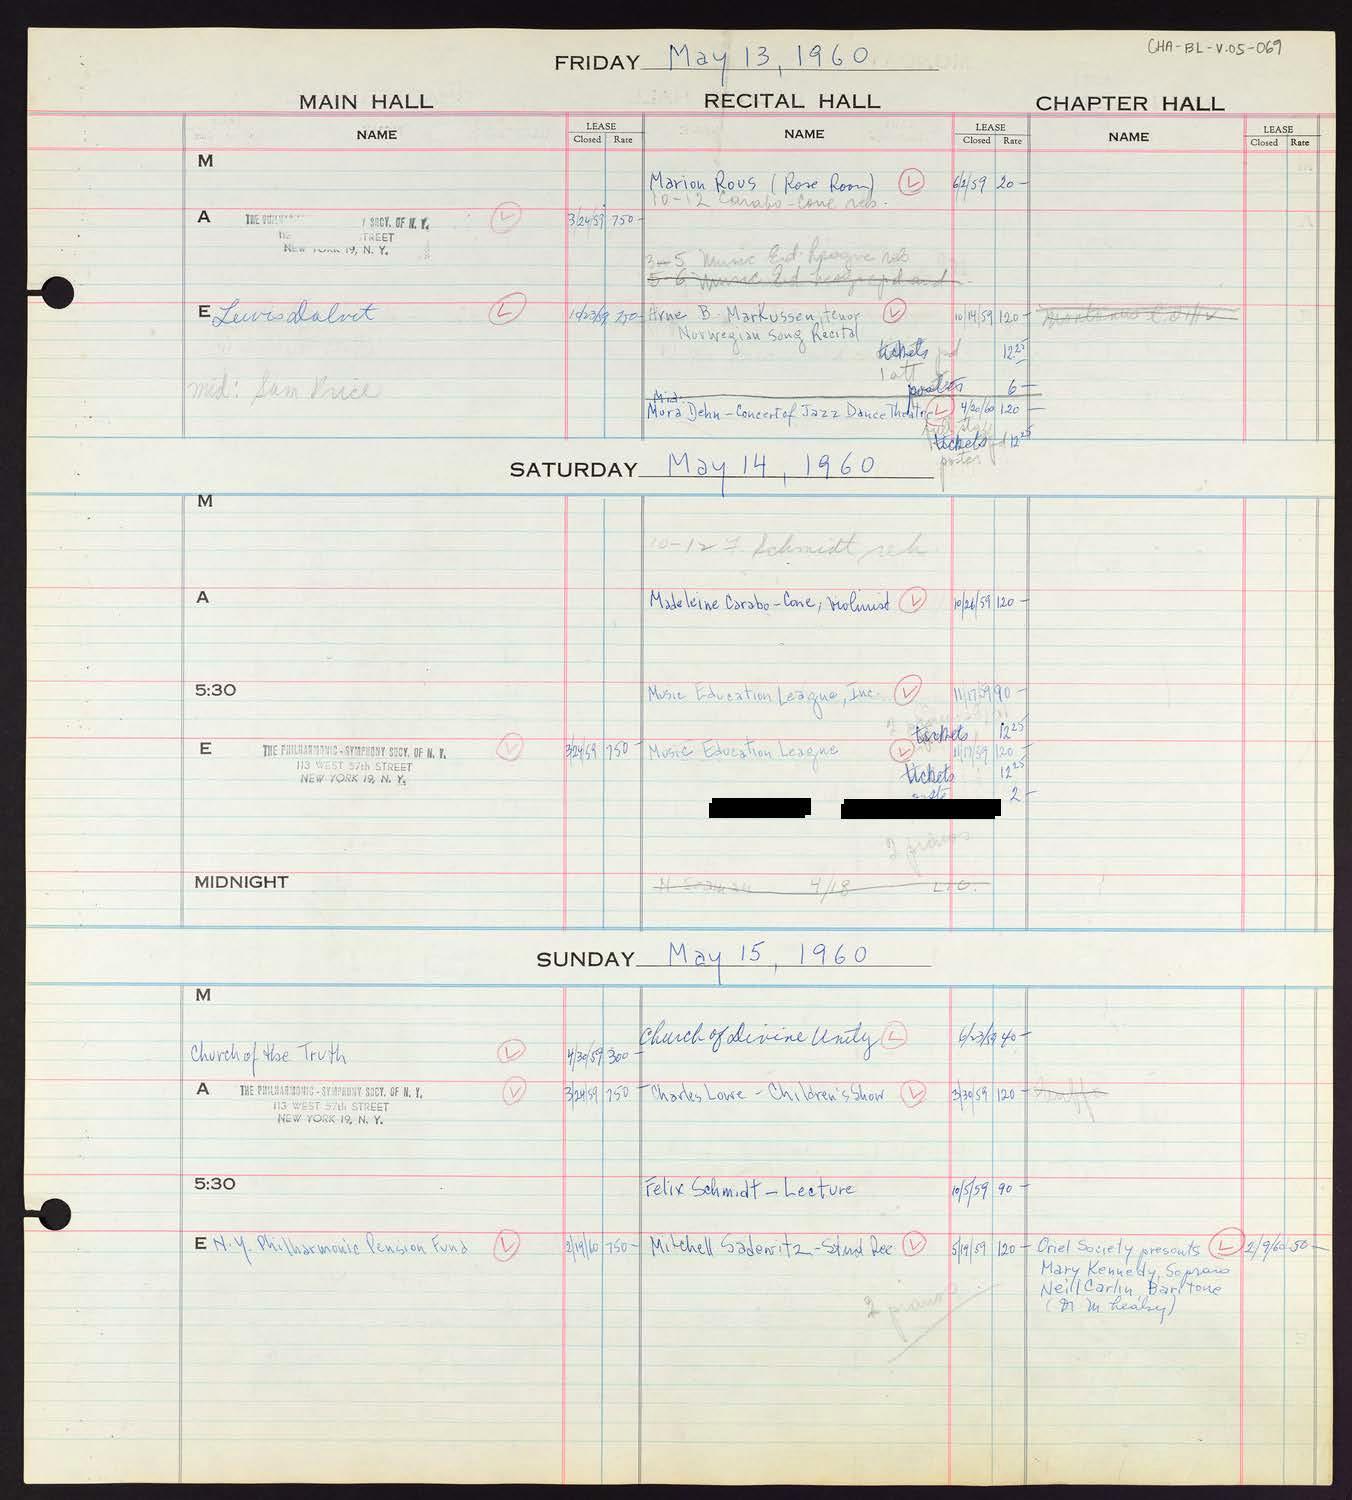 CHA-BL-V.05-069
FRIDAY May 13, 1960
MAIN HALL RECITAL HALL CHAPTER HALL
NAME LEASE NAME LEASE NAME LEASE
Closed Rate Closed Rate Closed Rate
M
Marion Rous (Rose Room) L 6/2/59 20-
10-12 Carabo-Cone reh.
A THE SOCY. OF N. Y. L 3/24/59 750-
STREET
NEW YORK 19, N. Y.
3-5 Music Ed League reh
5-6 Music Ed
E Lewis Dalvit L 10/23/59 750- Arne B. Markussen, tenor L 10/14/59 120-
Norwegian Song Recital
tickets pd 12.25
1 att
mid: Sam Price posters 6-
Mid:
Mura Dehn - Concert of Jazz Dance Theatre L 4/20/60 120-
tickets pd 12.25
poster
SATURDAY May 14, 1960
M
10-12 F. Schmidt reh
A Madeleine Carabo-Cone, violinist L 10/26/59 120-
5:30 Music Education League, Inc. L 11/17/59 90-
tickets 12.25
E THE PHILHARMONIC-SYMPHONY SOCY. OF N. Y. L 3/24/59 750 Music Education League L 11/17/59 120-
113 WEST 57th STREET tickets 12.25
NEW YORK 19, N. Y. 2-
2 pianos
MIDNIGHT 4/18
SUNDAY May 15, 1960
M
Church of Divine Unity L 6/23/59 40-
Church of the Truth L 4/30/59 300-
A THE PHILHARMONIC-SYMPHONY SOCY. OF N. Y. L 3/24/59 750 Charles Lowe - Children's Show L 3/30/59 120-
113 WEST 57th STREET
NEW YORK 19, N. Y.
5:30 Felix Schmidt - Lecture 10/5/59 90-
E N.Y. Philharmonic Pension Fund L 2/19/60 750- Mitchell Sadewitz - Stud Rec L 5/19/59 120- Oriel Society presents L 2/9/60 50-
Mary Kennedy, Soprano
Neill Carlin, Baritone
2 pianos